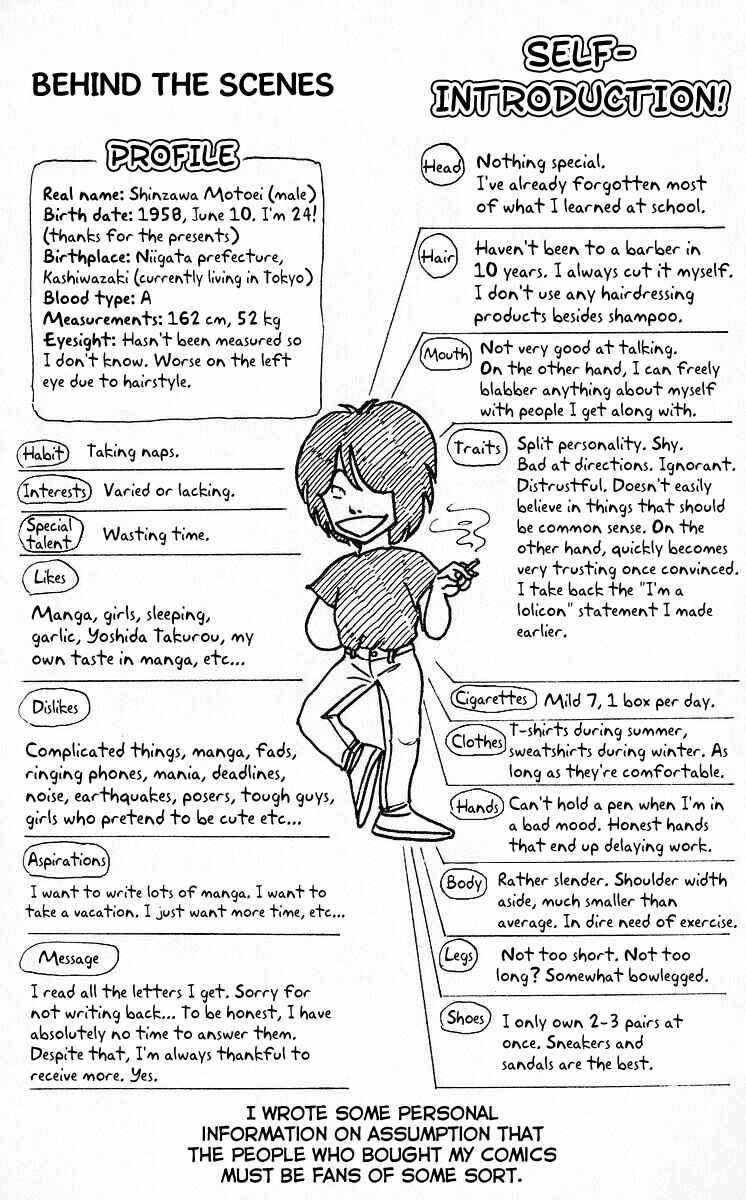 BEHIND THE SCENES
SELF-
INTRODUCTION!
PROFILE
Real name: Shinzawa Motoei (male)
Birth date: 1958, June 10. I'm 24!
(thanks for the presents)
Birthplace: Niigata prefecture,
Kashiwazaki (currently living in Tokyo)
Blood type: A
Measurements: 162 cm, 52 kg
Eyesight: Hasn't been measured so
I don't know. Worse on the left
eye due to hairstyle.
Habit
Taking naps.
Interests
Varied or lacking.
Special
talent
Wasting time.
Likes
Manga, girls, sleeping,
garlic, Yoshida Takurou, my
own taste in manga, etc...
Dislikes
Complicated things, manga, fads,
ringing phones, mania, deadlines,
noise, earthquakes, posers, tough guys,
girls who pretend to be cute etc...
Aspirations
I want to write lots of manga. I want to
take a vacation. I just want more time, etc...
Message
I read all the letters I get. Sorry for
not writing back... To be honest, I have
absolutely no time to answer them.
Despite that, I'm always thankful to
receive more. Yes.
Head
Nothing special.
I've already forgotten most
of what I learned at school.
Hair
Haven't been to a barber in
10 years. I always cut it myself.
I don't use any hairdressing
products besides shampoo.
Mouth
Not very good at talking.
On the other hand, I can freely
blabber anything about myself
with people I get along with.
Traits
Split personality. Shy.
Bad at directions. Ignorant.
Distrustful. Doesn't easily
believe in things that should
be common sense. On the
other hand, quickly becomes
very trusting once convinced.
I take back the "I'm a
lolicon" statement I made
earlier.
Cigarettes
Mild 7, 1 box per day.
Clothes
T-shirts during summer,
sweatshirts during winter. As
long as they're comfortable.
Hands
Can't hold a pen when I'm in
a bad mood. Honest hands
that end up delaying work.
Body
Rather slender. Shoulder width
aside, much smaller than
average. In dire need of exercise.
Legs
Not too short. Not too
long? Somewhat bowlegged.
Shoes
I only own 2-3 pairs at
once. Sneakers and
sandals are the best.
I WROTE SOME PERSONAL
INFORMATION ON ASSUMPTION THAT
THE PEOPLE WHO BOUGHT MY COMICS
MUST BE FANS OF SOME SORT.